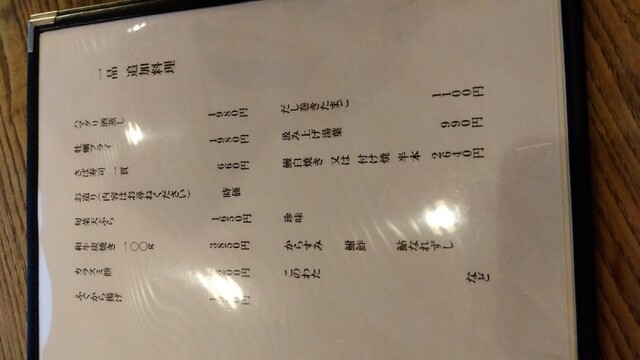 一品 追加料理
ハマグリ酒蒸し 1980円
牡蠣フライ 1980円
さば寿司 一貫 660円
お造り(内容はお尋ねください) 時価
旬菜天ぷら 1650円
和牛炭焼き 一〇〇g 3850円
カラスミ餅 円
ふぐから揚げ 円
だし巻きたまご 1100円
汲み上げ湯葉 990円
鰻白焼き 又は 付け焼 半本 2640円
珍味
からすみ 鮒鮓 鮎なれずし
このわた
など